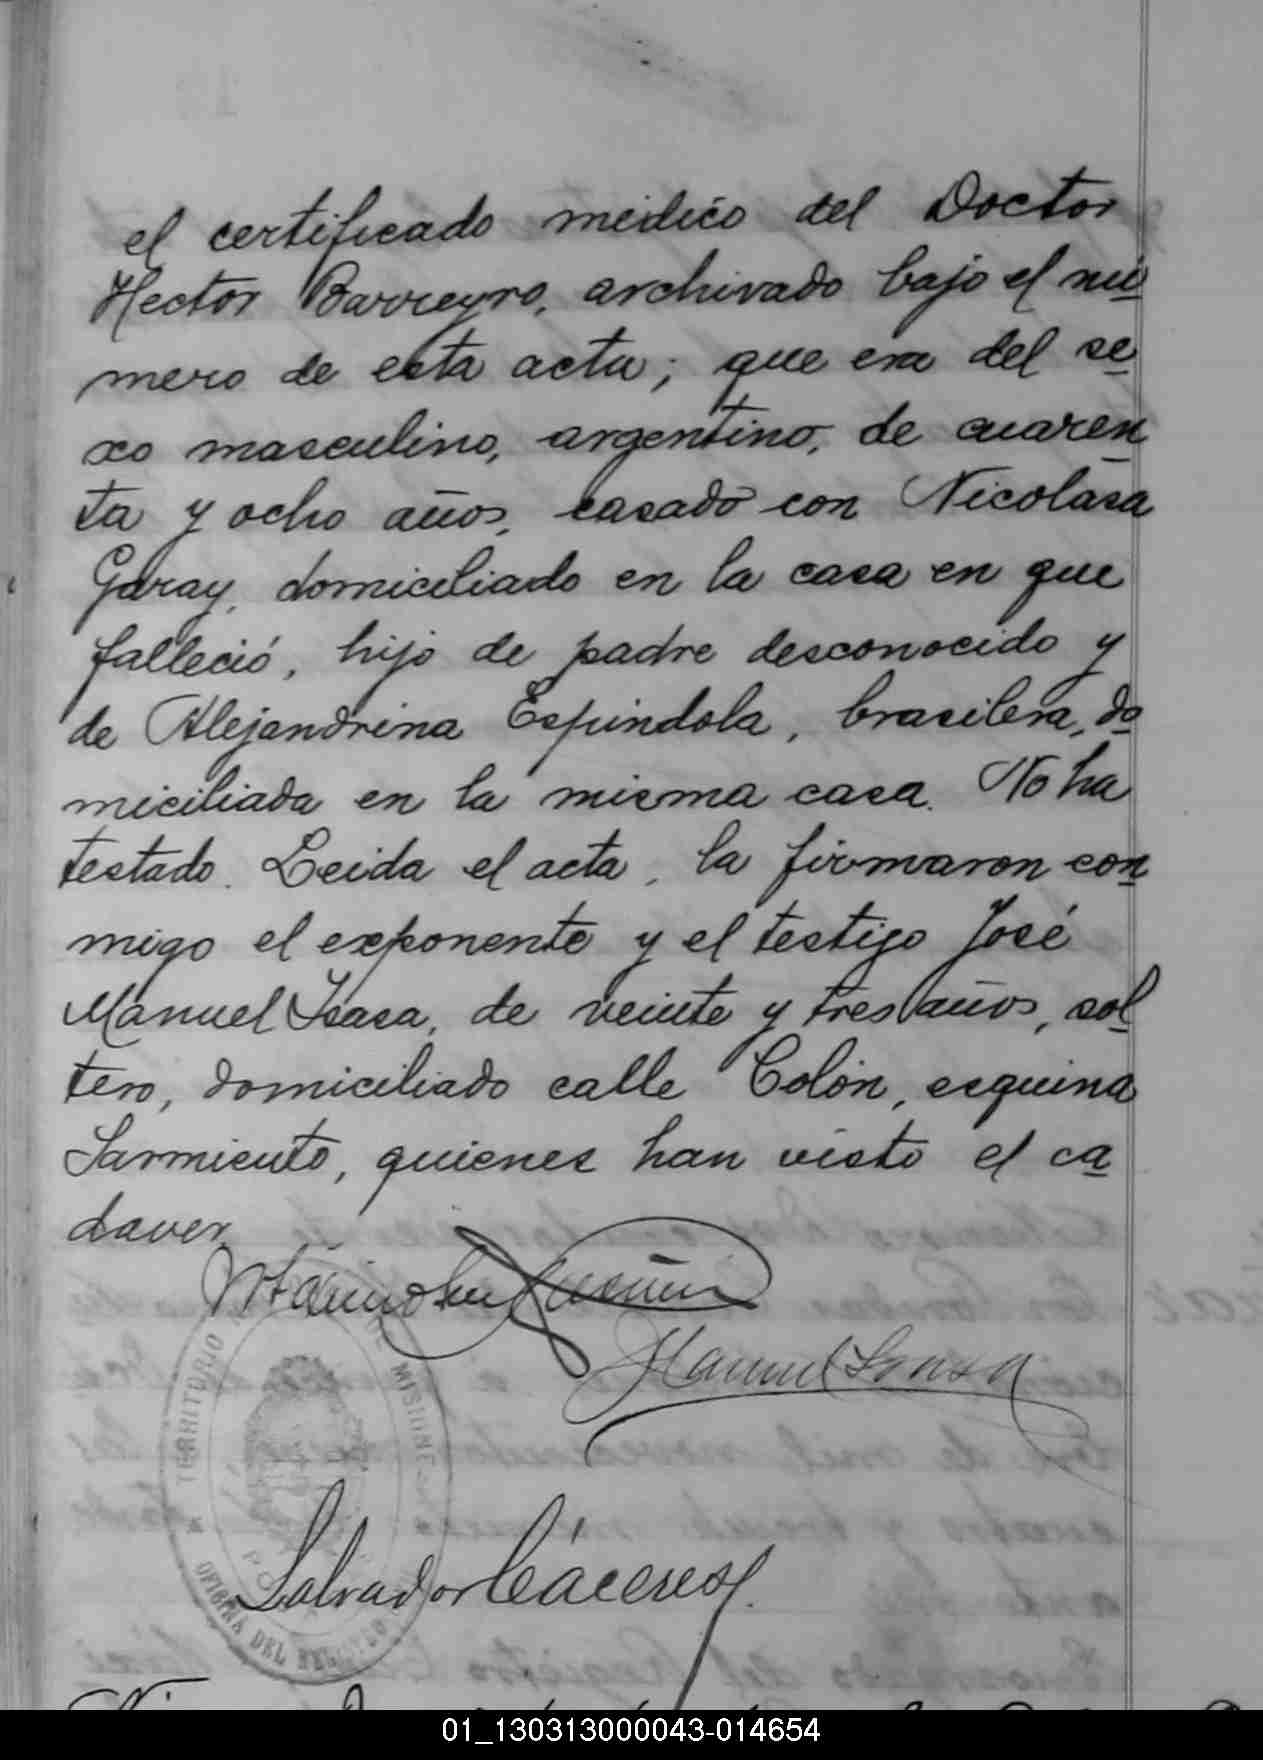 el certificado médico del Doctor
Hector Barreyro, archivado bajo el nú
mero de esta acta; que era del se
xo masculino, argentino, de cuaren
ta y ocho años, casado con Nicolasa
Garay, domiciliado en la casa en que
falleció, hijo de padre desconocido y
de Alejandrina Espindola, brasilera, do
miciliada en la misma casa. No ha
testado. Leida el acta, la firmaron con
migo el exponente y el testigo José
Manuel Isasa, de veinte y tres años, sol
tero, domiciliado calle Colón, esquina
Sarmiento, quienes han visto el ca
daver
Manuel Isasa
TERRITORIO DE MISIONES
OFICINA DEL REGISTRO
Salvador Cáceres
01_130313000043-014654